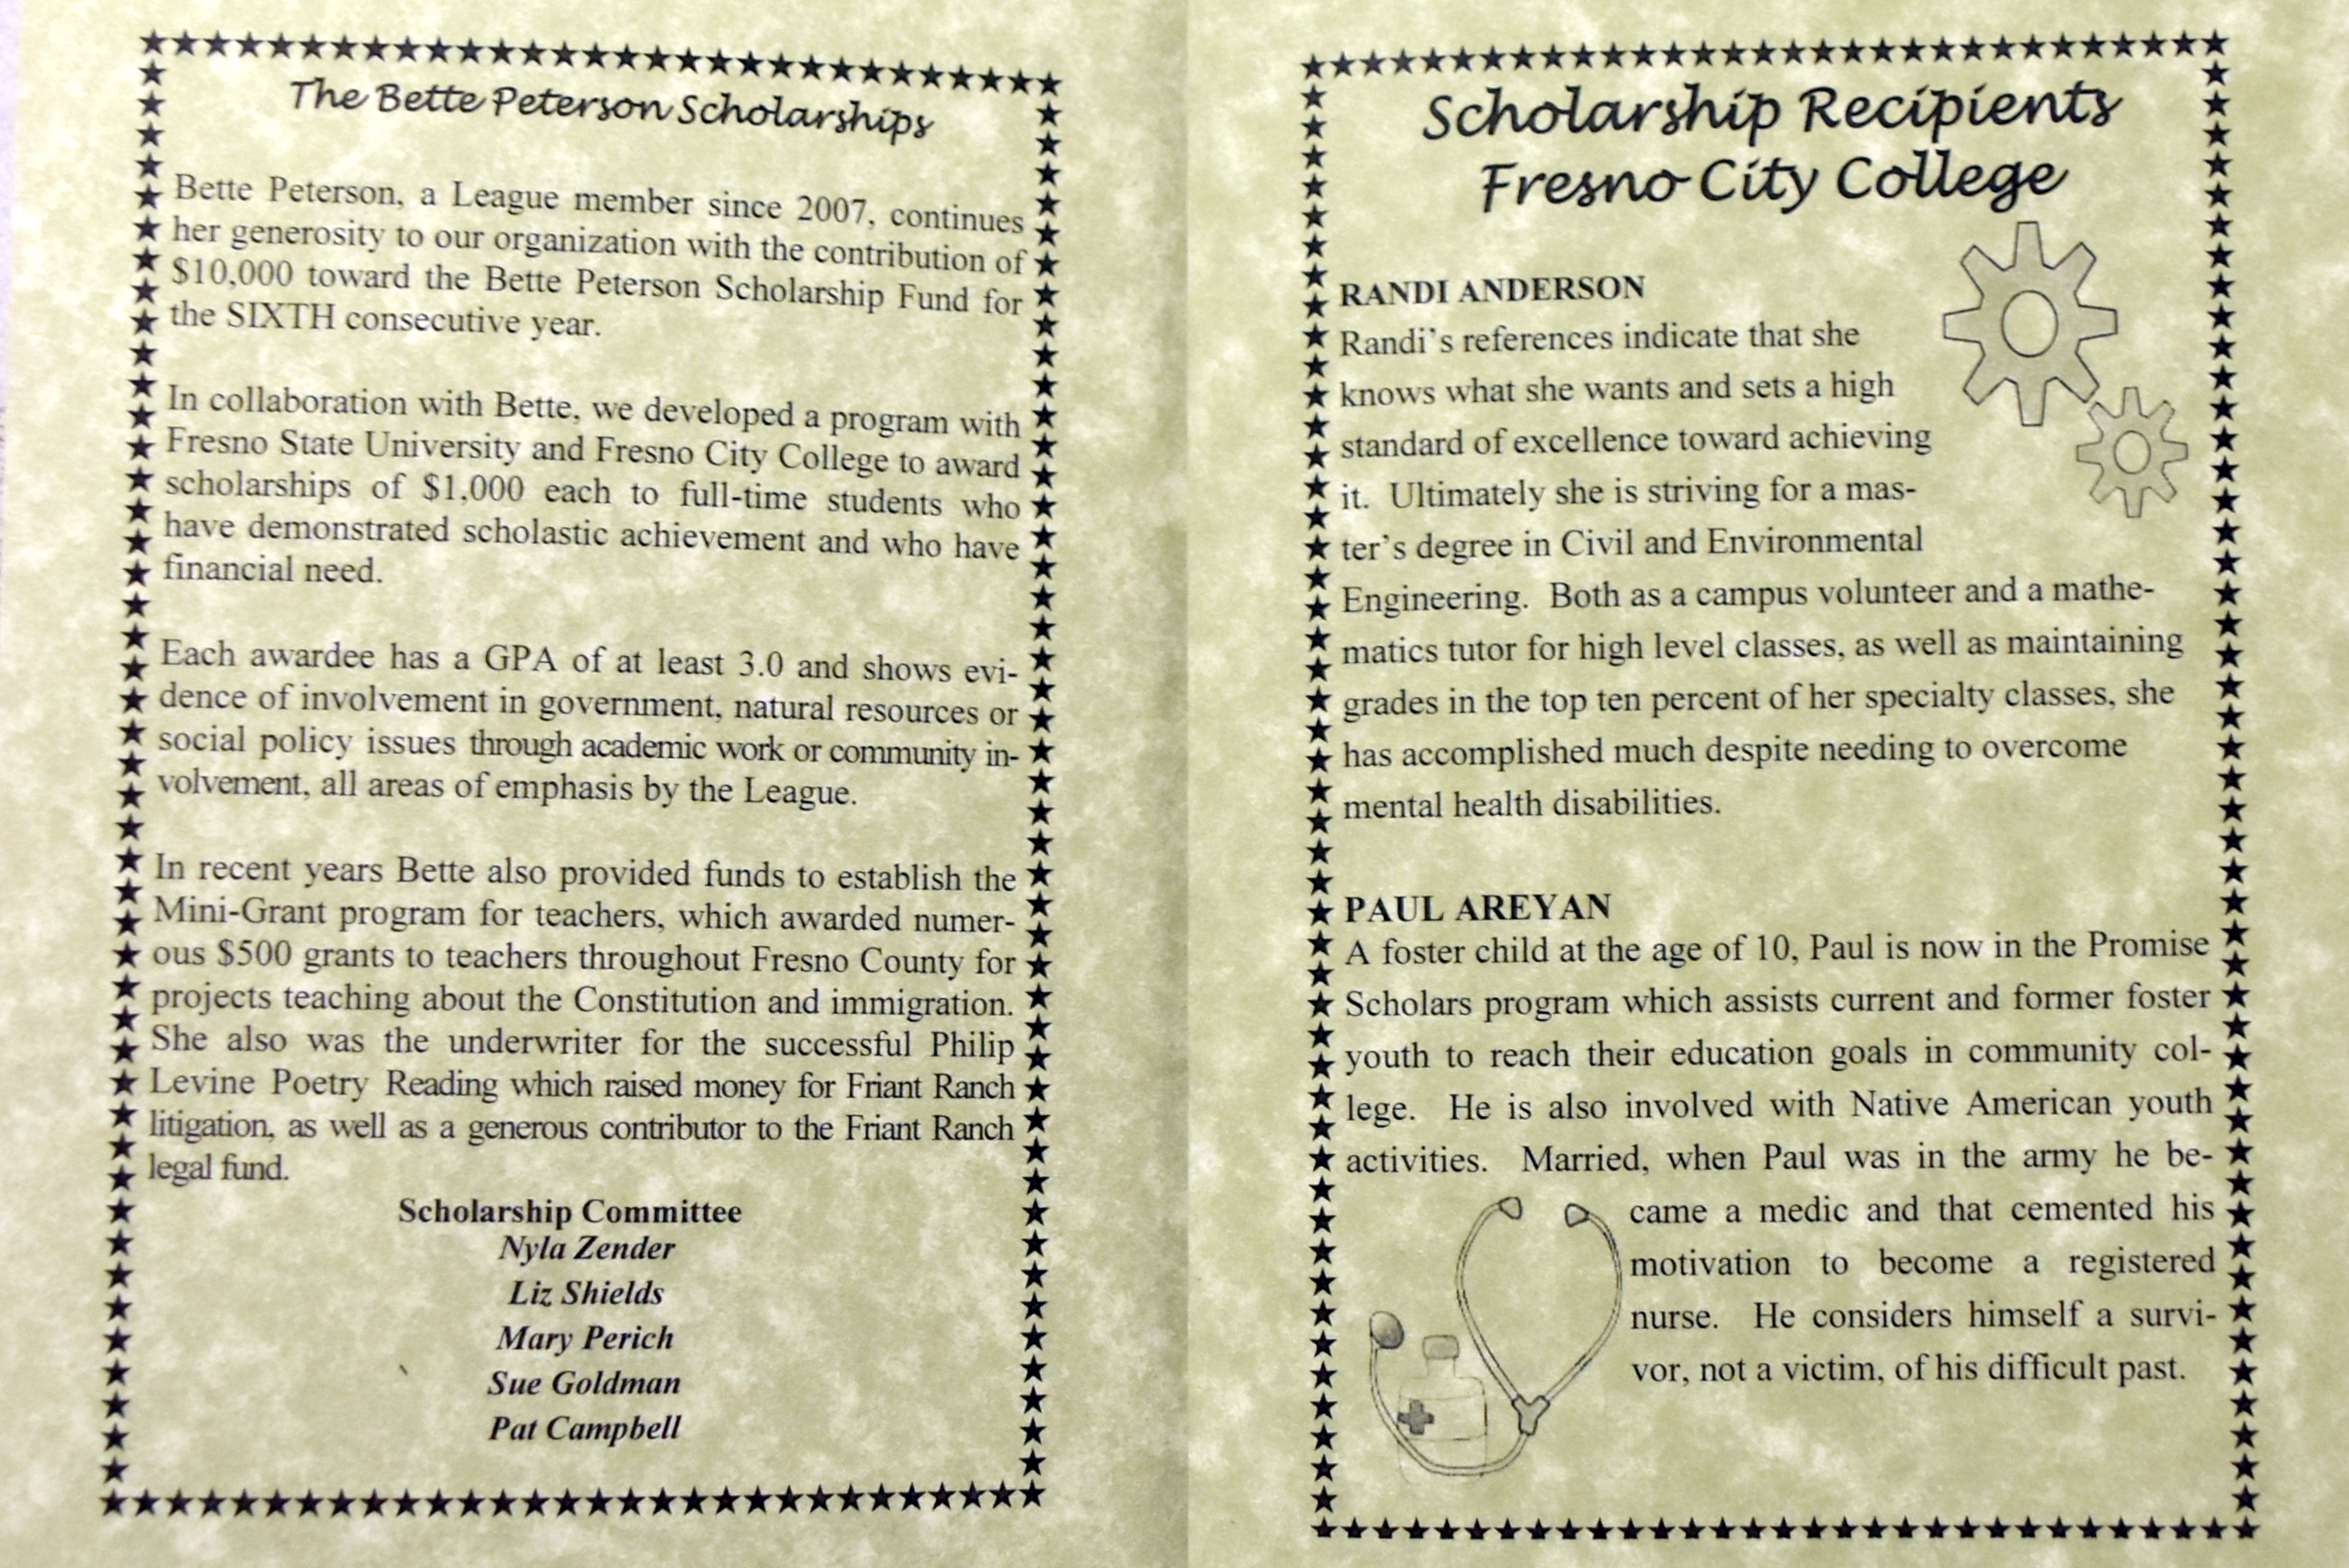 The Bette Peterson Scholarships
Bette Peterson, a League member since 2007, continues
her generosity to our organization with the contribution of
$10,000 toward the Bette Peterson Scholarship Fund for
the SIXTH consecutive year.
In collaboration with Bette, we developed a program with
Fresno State University and Fresno City College to award
scholarships of $1,000 each to full-time students who
have demonstrated scholastic achievement and who have
financial need.
Each awardee has a GPA of at least 3.0 and shows evi-
dence of involvement in government, natural resources or
social policy issues through academic work or community in-
volvement, all areas of emphasis by the League.
In recent years Bette also provided funds to establish the
Mini-Grant program for teachers, which awarded numer-
ous $500 grants to teachers throughout Fresno County for
projects teaching about the Constitution and immigration.
She also was the underwriter for the successful Philip
Levine Poetry Reading which raised money for Friant Ranch
litigation, as well as a generous contributor to the Friant Ranch
legal fund.
Scholarship Committee
Nyla Zender
Liz Shields
Mary Perich
Sue Goldman
Pat Campbell
Scholarship Recipients
Fresno City College
RANDI ANDERSON
Randi's references indicate that she
knows what she wants and sets a high
standard of excellence toward achieving
it. Ultimately she is striving for a mas-
ter's degree in Civil and Environmental
Engineering. Both as a campus volunteer and a mathe-
matics tutor for high level classes, as well as maintaining
grades in the top ten percent of her specialty classes, she
has accomplished much despite needing to overcome
mental health disabilities.
PAUL AREYAN
A foster child at the age of 10, Paul is now in the Promise
Scholars program which assists current and former foster
youth to reach their education goals in community col-
lege. He is also involved with Native American youth
activities. Married, when Paul was in the army he be-
came a medic and that cemented his
motivation to become a registered
nurse. He considers himself a survi-
vor, not a victim, of his difficult past.